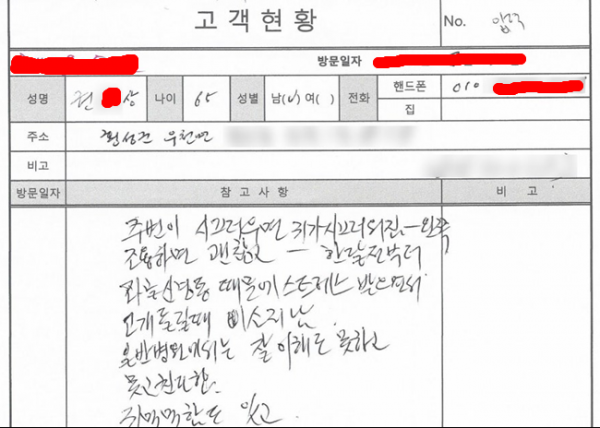 고객현황
No.
방문일자
성명 권 상 나이 65 성별 남(v) 여( ) 전화 핸드폰 010
집
주소 횡성군 우천면
비고
방문일자 참고사항 비고
주변이 시끄러우면 귀가 시끄러워진 - 왼쪽
조용하면 괜찮고 - 한달전부터
때문에 스트레스 받으면서
고개돌릴때 삐소리남
일반병원에서는 잘 이해도 못하고
못고친다함.
귀먹먹함도 있고.